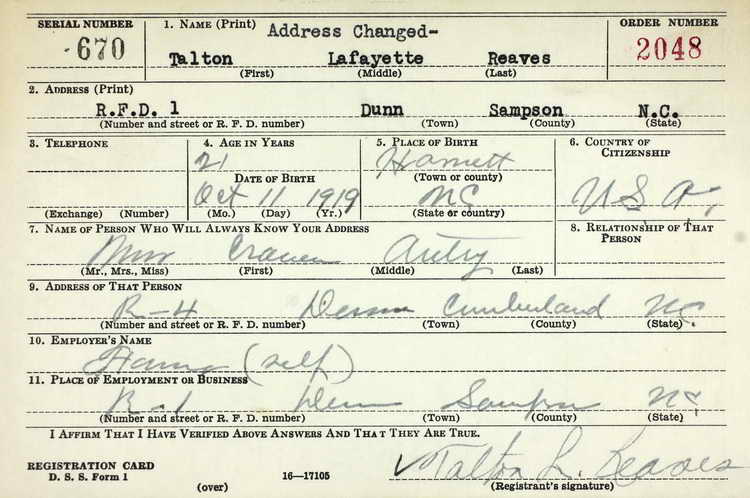 SERIAL NUMBER 1. NAME (Print) Address Changed- ORDER NUMBER
670 Talton Lafayette Reaves 2048
(First) (Middle) (Last)
2. ADDRESS (Print)
R.F.D. 1 Dunn Sampson N.C.
(Number and street or R. F. D. number) (Town) (County) (State)
3. TELEPHONE 4. AGE IN YEARS 5. PLACE OF BIRTH 6. COUNTRY OF CITIZENSHIP
21 Harnett
DATE OF BIRTH (Town or county)
Oct 11 1919 NC U S A
(Exchange) (Number) (Mo.) (Day) (Yr.) (State or country)
7. NAME OF PERSON WHO WILL ALWAYS KNOW YOUR ADDRESS 8. RELATIONSHIP OF THAT PERSON
Craven Autry
(Mr., Mrs., Miss) (First) (Middle) (Last)
9. ADDRESS OF THAT PERSON
R-4 Dunn Cumberland NC.
(Number and street or R. F. D. number) (Town) (County) (State)
10. EMPLOYER'S NAME
(self)
11. PLACE OF EMPLOYMENT OR BUSINESS
R-1 Dunn Sampson NC
(Number and street or R. F. D. number) (Town) (County) (State)
I AFFIRM THAT I HAVE VERIFIED ABOVE ANSWERS AND THAT THEY ARE TRUE.
REGISTRATION CARD
D. S. S. Form 1 16—17105 ✓ Talton L. Reaves
(over) (Registrant's signature)